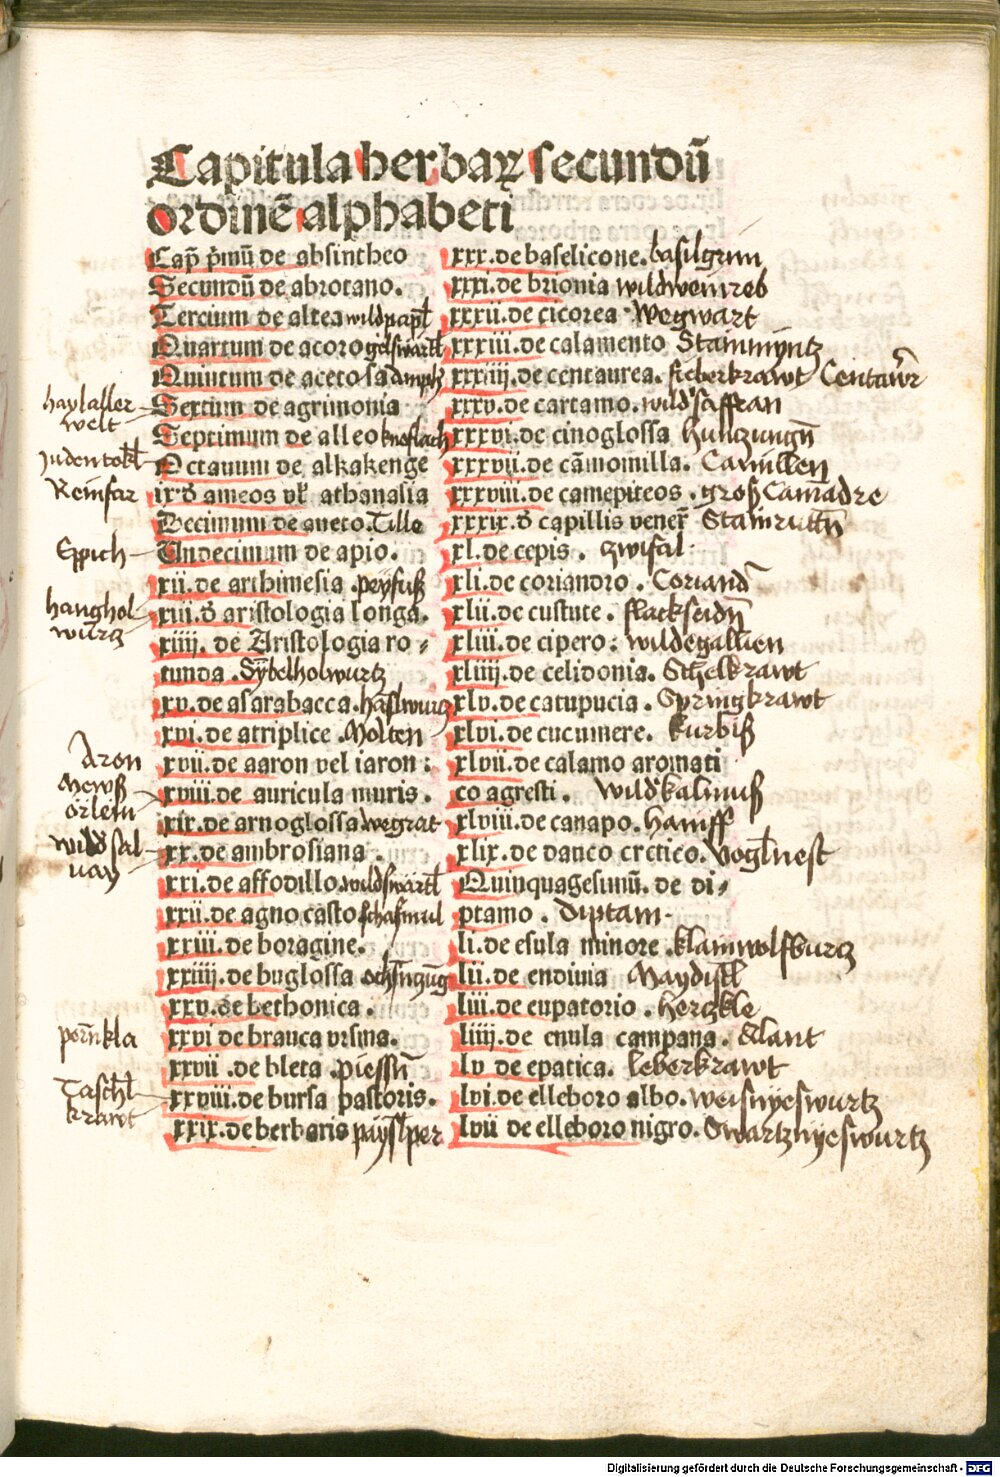 Capitula herbaꝝ secundū
ordinē alphabeti
Cap̄ p̄mū de absintheo
Secundū de abrotano.
Tercium de altea wildpapl
Quartum de acoro gelswartl
Quintum de acetosa ampfz
haylaller
welt
Sextum de agrimonia
Septimum de alleo knoflach
Judentokl
Octauum de alkakenge
Reinfar
ix. đ ameos vl̄ athanasia
Decimum de aneto. Tille
Eppich
Undecimum de apio.
xii. de arthimesia. peyfuß
hanghol
wurtz
xiii. đ aristologia longa.
xiiii. de Aristologia ro⸗
tunda. Sybelholwurtz
xv. de asarabacca. haslwurtz
xvi. de atriplice. Molten
Aron
xvii. de aaron vel iaron:
Mewß
örlein
xviii. de auricula muris.
xix. de arnoglossa wegrat
wild sal
uay
xx. de ambrosiana.
xxi. de affodillo. wildswartl
xxii. de agno casto schafmul
xxiii. de boragine.
xxiiii. de buglossa ochsnzūg
xxv. de bethonica.
pern̄kla
xxvi de branca vrsina.
xxvii. de bleta. piessn̄
Taschl
krawt
xxviii. de bursa pastoris.
xxix. de berberis payslper
xxx. de baselicone. basilgrun
xxxi. de brionia wildweinreb
xxxii. de cicorea. Wegwart
xxxiii. de calamento Stainmyntz
xxxiiii. de centaurea. fieberkrawt Centawr
xxxv. de cartamo. wild saffran
xxxvi. de cinoglossa Hunczungn̄
xxxvii. de cāmomilla. Camillen
xxxviii. de camepiteos. groß Camadre
xxxix. đ capillis vener̄ Stainrutn̄
xl. de cepis. zwifal
xli. de coriandro. Coriand
xlii. de custute. flachseidn̄
xliii. de cipero: wildegallien
xliiii. de celidonia. Schelkrawt
xlv. de catupucia. Springkrawt
xlvi. de cucumere. kurbiß
xlvii. de calamo aromati
co agresti. Wildkalmuß
xlviii. de canapo. Hanff
xlix. de dauco cretico. voglnest
Quinquagesimū. de di⸗
ptamo. Diptam.
li. de esula minore. klainwolfsurtz
lii. de endiuia Maydistl
liii. de eupatorio. hertzkle
liiii. de enula campana. Alant
lv de epatica. leberkrawt
lvi. de elleboro albo. weisnyeswurtz
lvii de elleboro nigro. Swartznyeswurtz
Digitalisierung gefördert durch die Deutsche Forschungsgemeinschaft - DFG